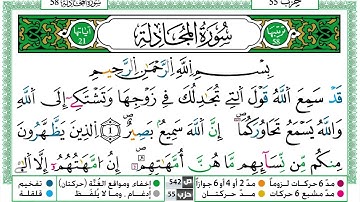 سُورَةُ المُجَادلَة
ترتيبها 58
آياتها
بِسْمِ اللَّهِ الرَّحْمَٰنِ الرَّحِيمِ
قَدْ سَمِعَ اللَّهُ قَوْلَ الَّتِي تُجَٰدِلُكَ فِي زَوْجِهَا وَتَشْتَكِي إِلَى اللَّهِ
وَاللَّهُ يَسْمَعُ تَحَاوُرَكُمَا إِنَّ اللَّهَ سَمِيعٌ بَصِيرٌ ١ الَّذِينَ يَظَّهَّرُونَ
مِنكُم مِّن نِّسَآئِهِم مَّا هُنَّ أُمَّهَٰتِهِمْ إِنْ أُمَّهَٰتُهُمْ إِلَّا
مدّ 6 حركات لزوماً مدّ 2 أو 4 أو 6 جوازاً ص 542 إخفاء، ومواقع الغُنَّة (حركتان) تفخيم
مدّ مشبع 6 حركات مدّ حركتان حزب 55 إدغام، وما لا يُلفَظ قلقلة